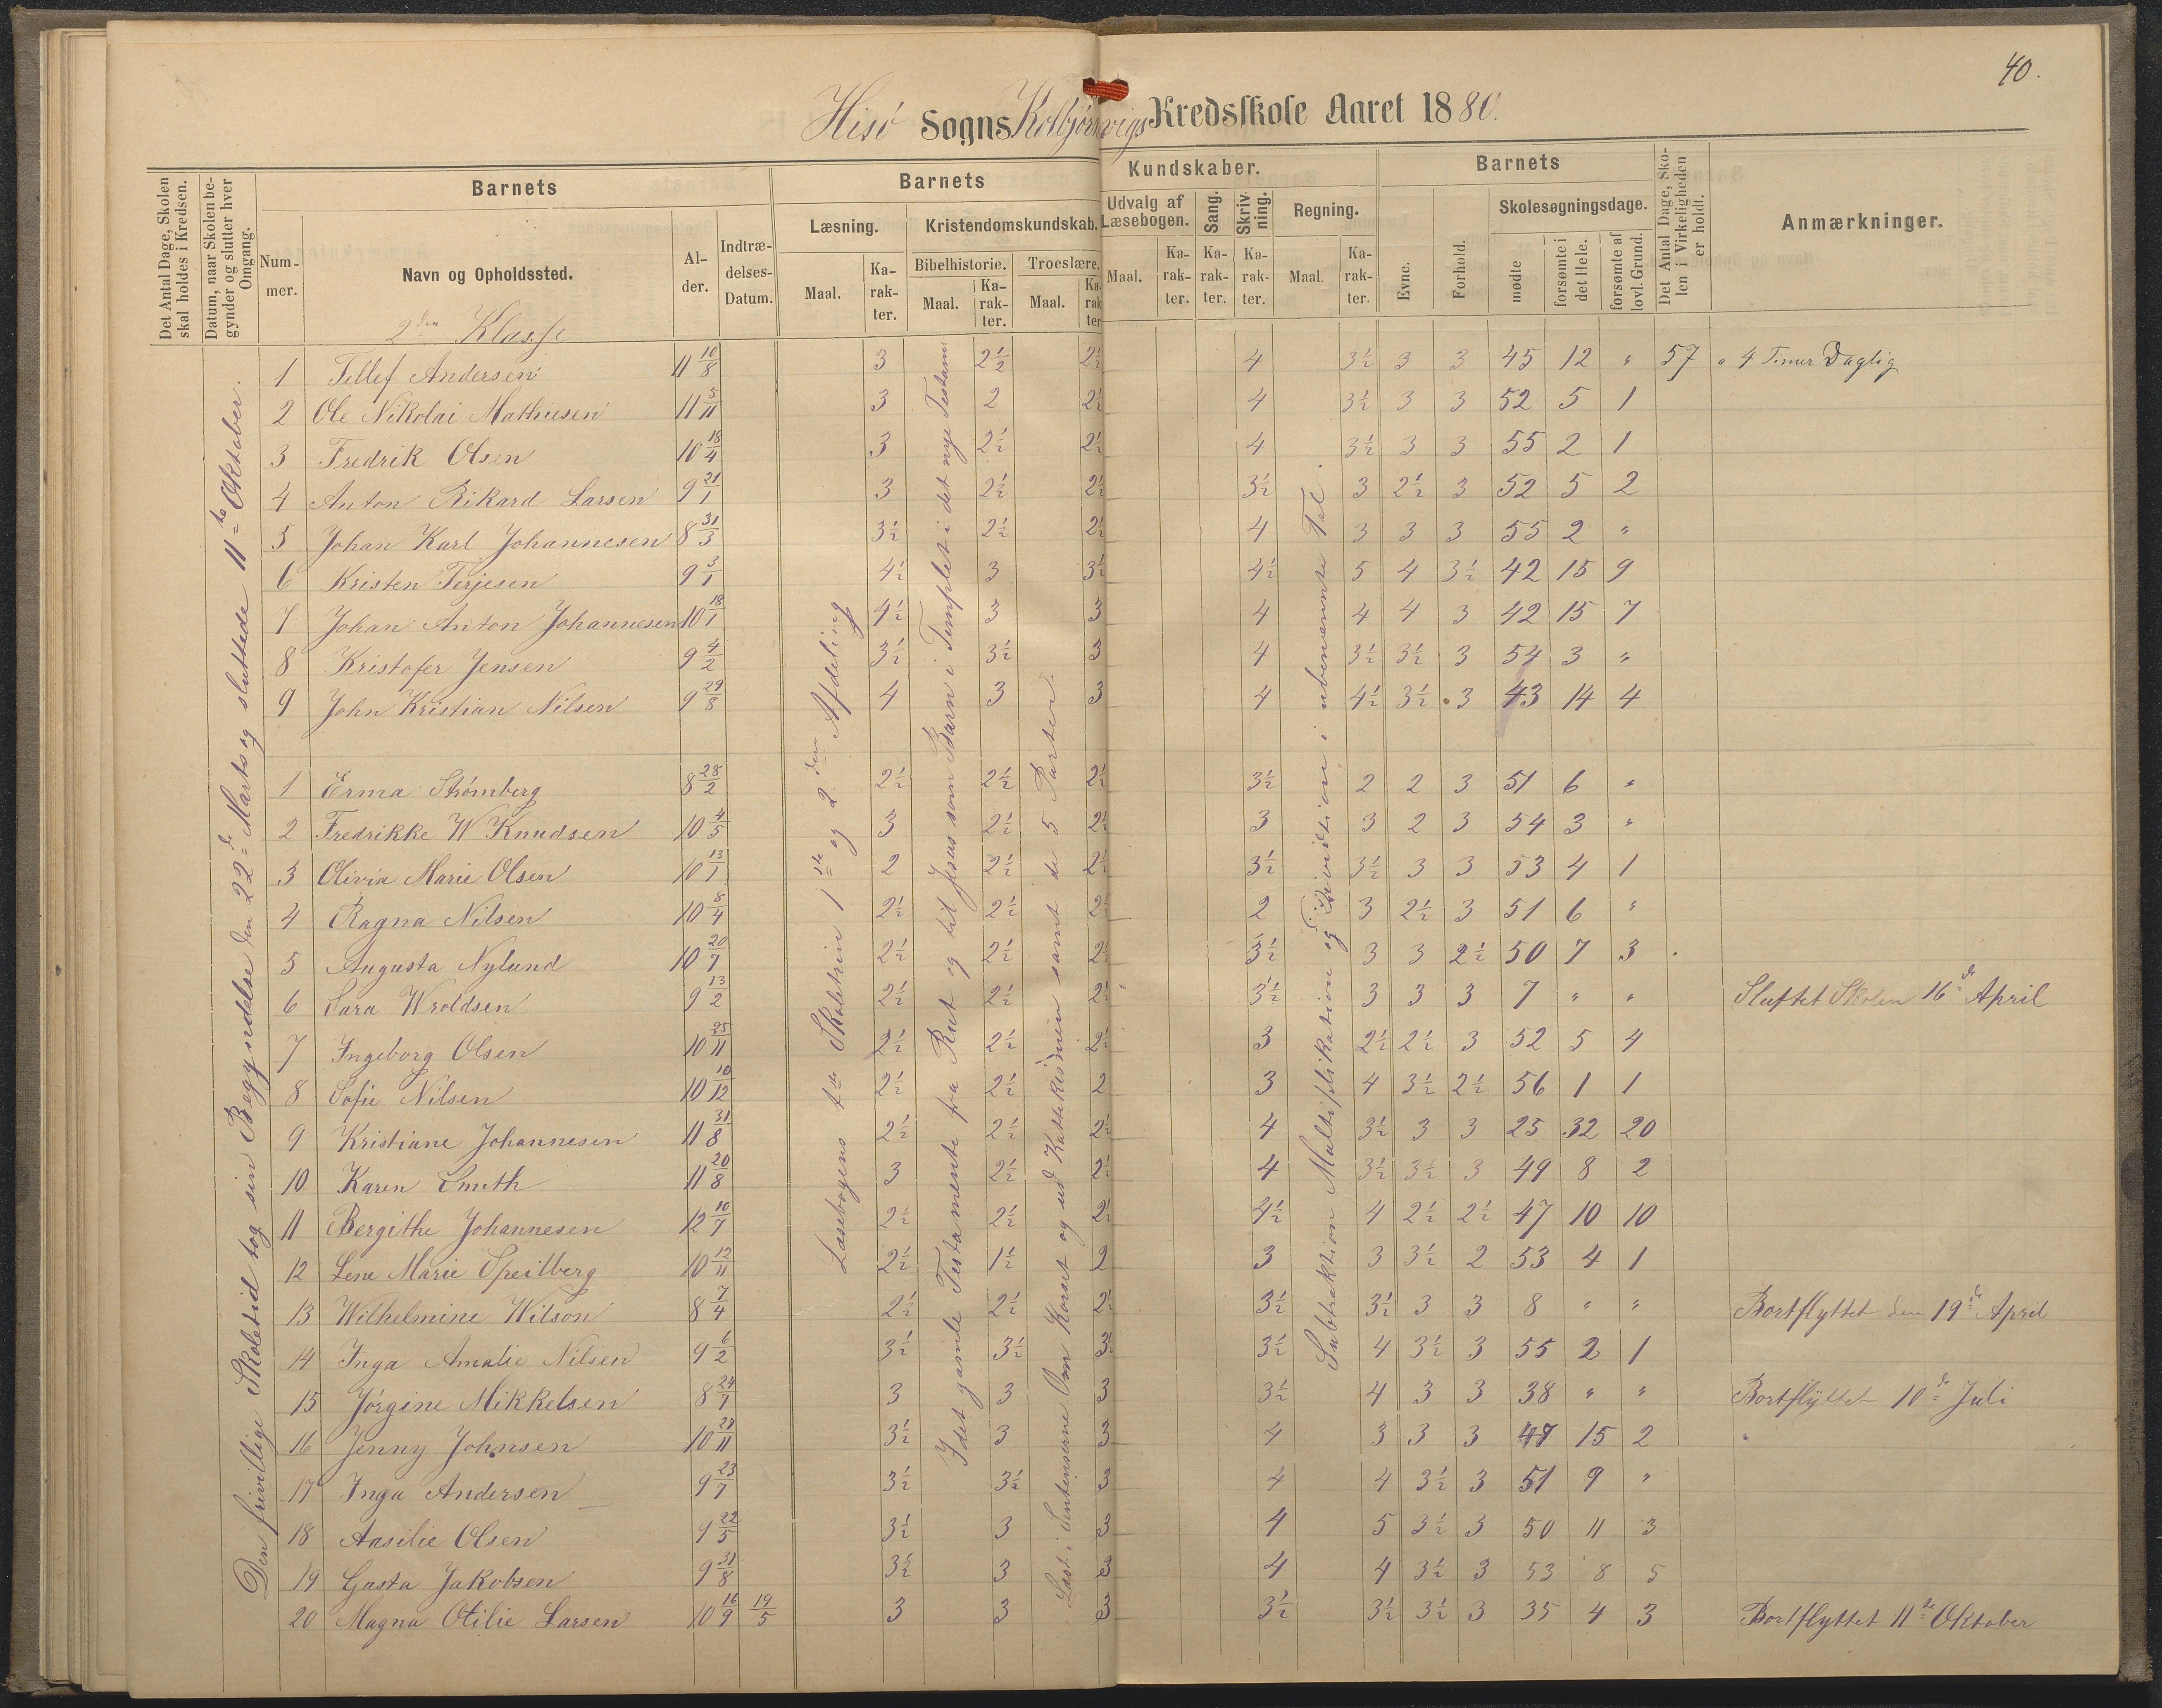 40.
Hisö Sogns Kolbjørnsvigs Kredsskole Aaret 1880.
Det Antal Dage, Skolen skal holdes i Kredsen.
Datum, naar Skolen begynder og slutter hver Omgang.
Barnets
Nummer.
Navn og Opholdssted.
Alder.
Indtrædelses-Datum.
Barnets Kundskaber.
Læsning.
Maal.
Karakter.
Kristendomskundskab.
Bibelhistorie.
Maal.
Karakter.
Troeslære.
Maal.
Karakter
Udvalg af Læsebogen.
Maal.
Karakter.
Sang.
Karakter.
Skrivning.
Karakter.
Regning.
Maal.
Karakter.
Barnets
Evne.
Forhold.
Skolesøgningsdage.
mødte
forsømte i det Hele.
forsømte af lovl. Grund.
Det Antal Dage, Skolen i Virkeligheden er holdt.
Anmærkninger.
2den Klasse
Den frivillige Skoletid tog sin Begyndelse den 22de Marts og sluttede 11te Oktober.
Læsebogens 1ste Skoletrin 1ste og 2den Afdeling
I det gamle Testamente fra Rut og til Jesus som Barn i Templet i det nye Testam.
Læst i Sentenserne Om Korset og ud Kattekismen samt de 5 Parter.
Subtraktion Multiplikation og Dividtion i ubenævnte Tal.
1 Tellef Andersen 11 10/8 3 2½ 2½ 4 3½ 3 3 45 12 " 57 a 4 Timer Daglig
2 Ole Nikolai Mathiesen 11 5/11 3 2 2½ 4 3½ 3 3 52 5 1
3 Fredrik Olsen 10 18/4 3 2½ 2½ 4 3½ 3 3 55 2 1
4 Anton Rikard Larsen 9 21/1 3 2½ 2½ 3½ 3 2½ 3 52 5 2
5 Johan Karl Johannesen 8 31/3 3½ 2½ 2½ 4 3 3 3 55 2 "
6 Kristen Terjesen 9 3/1 4½ 3 3½ 4½ 5 4 3½ 42 15 9
7 Johan Anton Johannesen 10 18/1 4½ 3 3 4 4 4 3 42 15 7
8 Kristofer Jensen 9 4/2 3½ 3½ 3 4 3½ 3½ 3 54 3 "
9 John Kristian Nilsen 9 29/8 4 3 3 4 4½ 3½ 3 43 14 4
1 Erma Strømberg 8 28/2 2½ 2½ 2½ 3½ 2 2 3 51 6 "
2 Fredrikke W Knudsen 10 4/5 3 2½ 2½ 3 3 2 3 54 3 "
3 Olivia Marie Olsen 10 13/1 2 2½ 2½ 3½ 3½ 3 3 53 4 1
4 Ragna Nilsen 10 8/4 2½ 2½ 2½ 2 3 2½ 3 51 6 "
5 Augusta Nylund 10 20/7 2½ 2½ 2½ 3½ 3 3 2½ 50 7 3
6 Sara Wroldsen 9 13/2 2½ 2½ 2½ 3½ 3 3 3 7 " " Sluttet Skolen 16de April
7 Ingeborg Olsen 10 25/11 2½ 2½ 2½ 3 2½ 2½ 3 52 5 4
8 Sofie Nilsen 10 10/12 2½ 2½ 2 3 4 3½ 2½ 56 1 1
9 Kristiane Johannesen 11 31/8 2½ 2½ 2½ 4 3½ 3 3 25 32 20
10 Karen Smith 11 20/8 3 2½ 2½ 4 3½ 3½ 3 49 8 2
11 Bergithe Johannesen 12 10/7 2½ 2½ 2½ 4½ 4 2½ 2½ 47 10 10
12 Lene Marie Speilberg 10 12/11 2½ 1½ 2 3 3 3½ 2 53 4 1
13 Wilhelmine Wilson 8 7/4 2½ 2½ 2½ 3½ 3½ 3 3 8 " " Bortflyttet den 19de April
14 Inga Amalie Nilsen 9 6/2 3½ 3½ 3½ 3½ 4 3½ 3 55 2 1
15 Jørgine Mikkelsen 8 24/7 3 3 3 3½ 4 3 3 38 " " Bortflyttet 10de Juli
16 Jenny Johnsen 10 21/11 3½ 3 3 4 3 3 3 47 15 2
17 Inga Andersen 9 23/7 3½ 3½ 3 4 4 3½ 3 51 9 "
18 Aasilie Olsen 9 22/5 3½ 3 3 4 5 3½ 3 50 11 3
19 Gusta Jakobsen 9 31/8 3½ 3 3 4 4 3½ 3 53 8 5
20 Magna Otilie Larsen 10 16/9 19/5 3 3 3 3½ 3½ 3½ 3 35 4 3 Bortflyttet 11te Oktober